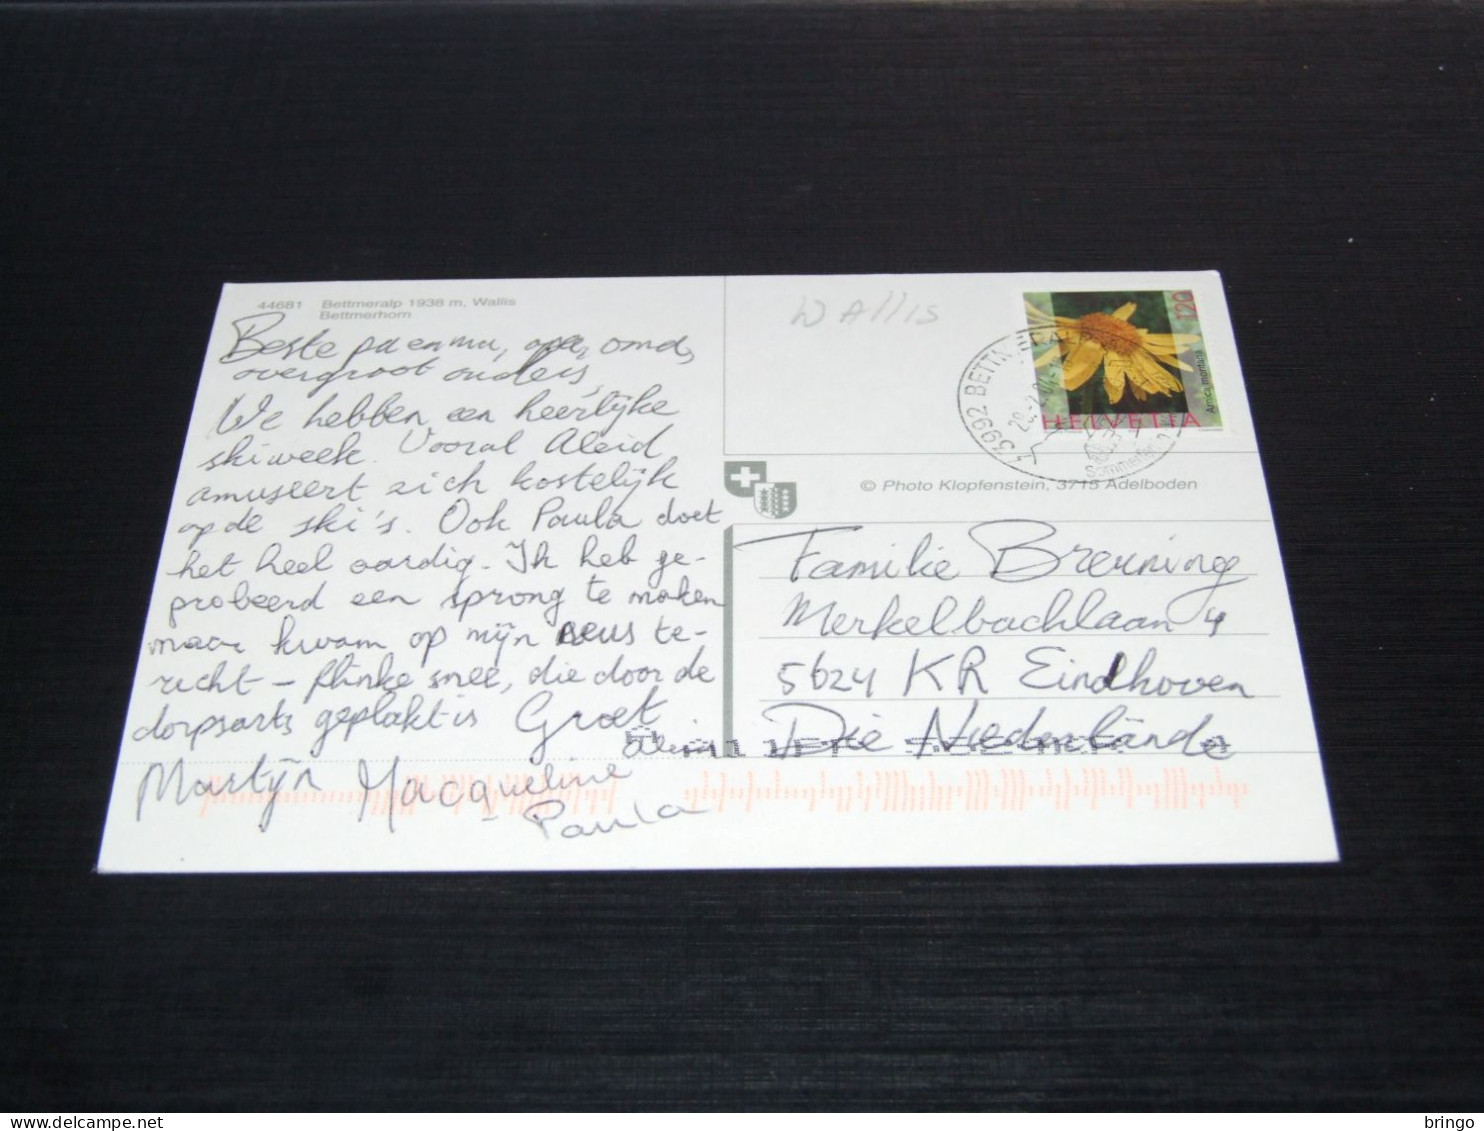 44681 Bettmeralp 1938 m, Wallis
Bettmerhorn
Beste pa en ma, opa, oma,
overgroot ouders,
We hebben een heerlijke
skiweek. Vooral Aleid
amuseert zich kostelijk
op de ski's. Ook Paula doet
het heel aardig. Ik heb ge-
probeerd een sprong te maken
maar kwam op mijn neus te-
recht - flinke snee, die door de
dorpsarts geplakt is Groet
Aleid
Martijn Jacqueline
Paula
Wallis
3992 BETTM
120
Arnica montana
HELVETIA
© Photo Klopfenstein, 3715 Adelboden
Familie Breuning
Merkelbachlaan 4
5624 KR Eindhoven
Die Niederlände
bringo